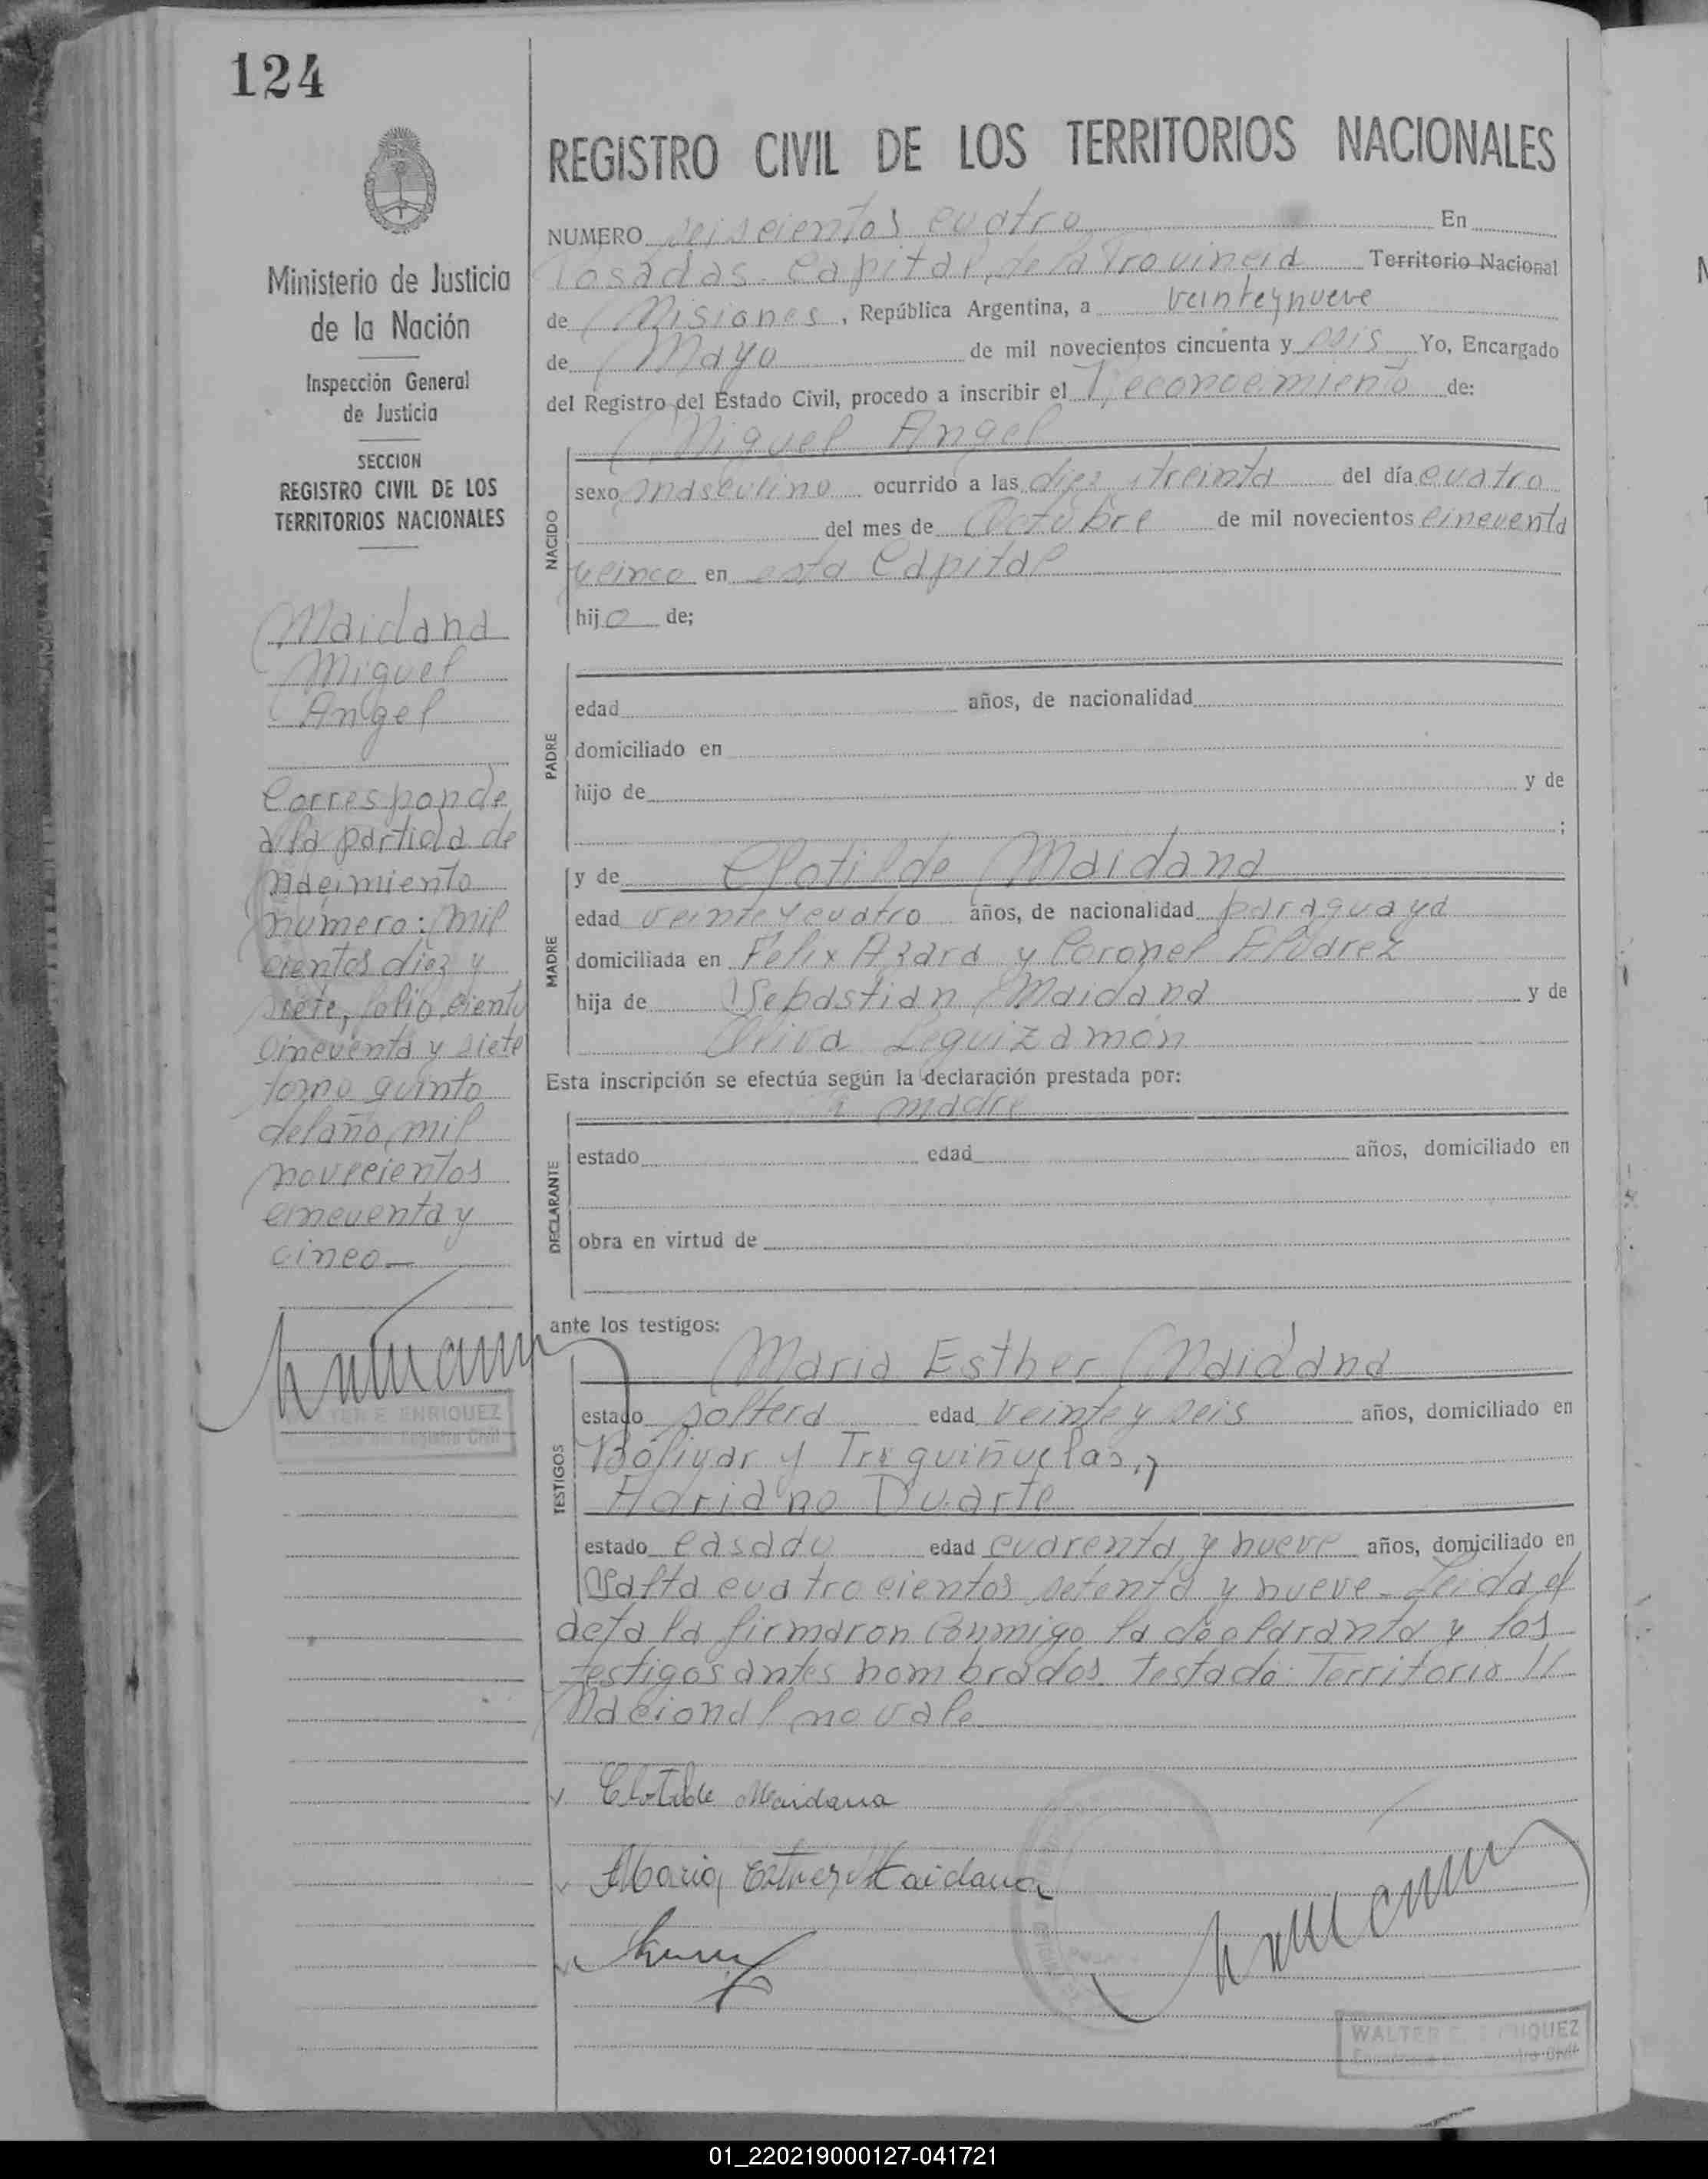 124
Ministerio de Justicia
de la Nación
Inspección General
de Justicia
SECCION
REGISTRO CIVIL DE LOS
TERRITORIOS NACIONALES
Maidana
Miguel
Angel
Corresponde
a la partida de
nacimiento
número: mil
cientos diez y
siete, folio ciento
cincuenta y siete
tomo quinto
del año mil
novecientos
cincuenta y
cinco
ENRIQUEZ
REGISTRO CIVIL DE LOS TERRITORIOS NACIONALES
NUMERO seiscientos cuatro En
Posadas. Capital, de la Provincia Territorio Nacional
de Misiones, República Argentina, a veinte y nueve
de Mayo de mil novecientos cincuenta y seis Yo, Encargado
del Registro del Estado Civil, procedo a inscribir el Reconocemiento de:
Miguel Angel
NACIDO
sexo masculino ocurrido a las diez y treinta del día cuatro
del mes de Octubre de mil novecientos cincuenta
y cinco en esta Capital
hijo de;
PADRE
edad años, de nacionalidad
domiciliado en
hijo de y de
;
MADRE
y de Clotilde Maidana
edad veinte y cuatro años, de nacionalidad paraguaya
domiciliada en Felix Azara y Coronel Alvarez
hija de Sebastian Maidana y de
Oliva Leguizamón
Esta inscripción se efectúa según la declaración prestada por:
madre
DECLARANTE
estado edad años, domiciliado en
obra en virtud de
ante los testigos:
Maria Esther Maidana
TESTIGOS
estado soltera edad veinte y seis años, domiciliado en
Bolivar y Troquiñuelas, y
Adriano Duarte
estado casado edad cuarenta y nueve años, domiciliado en
Salta cuatrocientos setenta y nueve - Leida el
acta la firmaron conmigo la declaranta y los
testigos antes nombrados. Testado: Territorio //
Nacional no vale
Clotilde Maidana
Maria Esther Maidana
WALTER E.
01_220219000127-041721